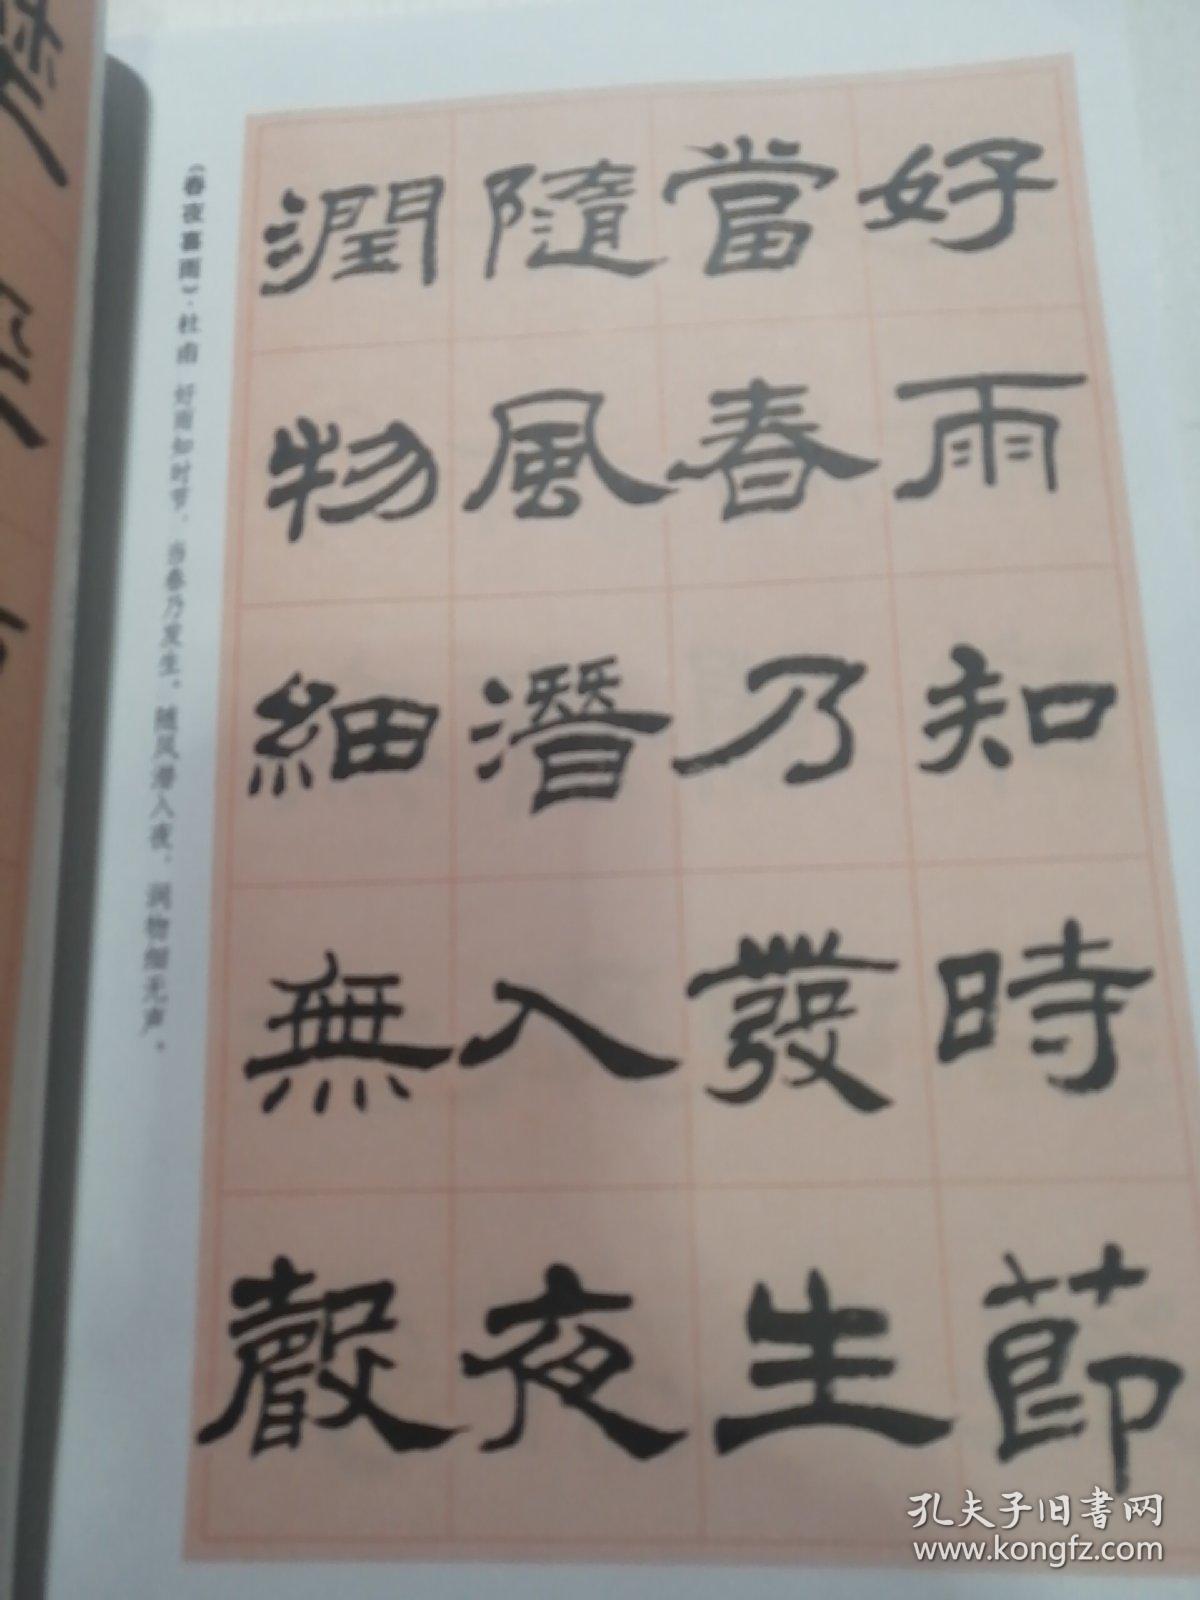 好雨知時節
當春乃發生
隨風潛入夜
潤物細無聲
《春夜喜雨》·杜甫 好雨知时节，当春乃发生。随风潜入夜，润物细无声。
孔夫子旧書网
www.kongfz.com